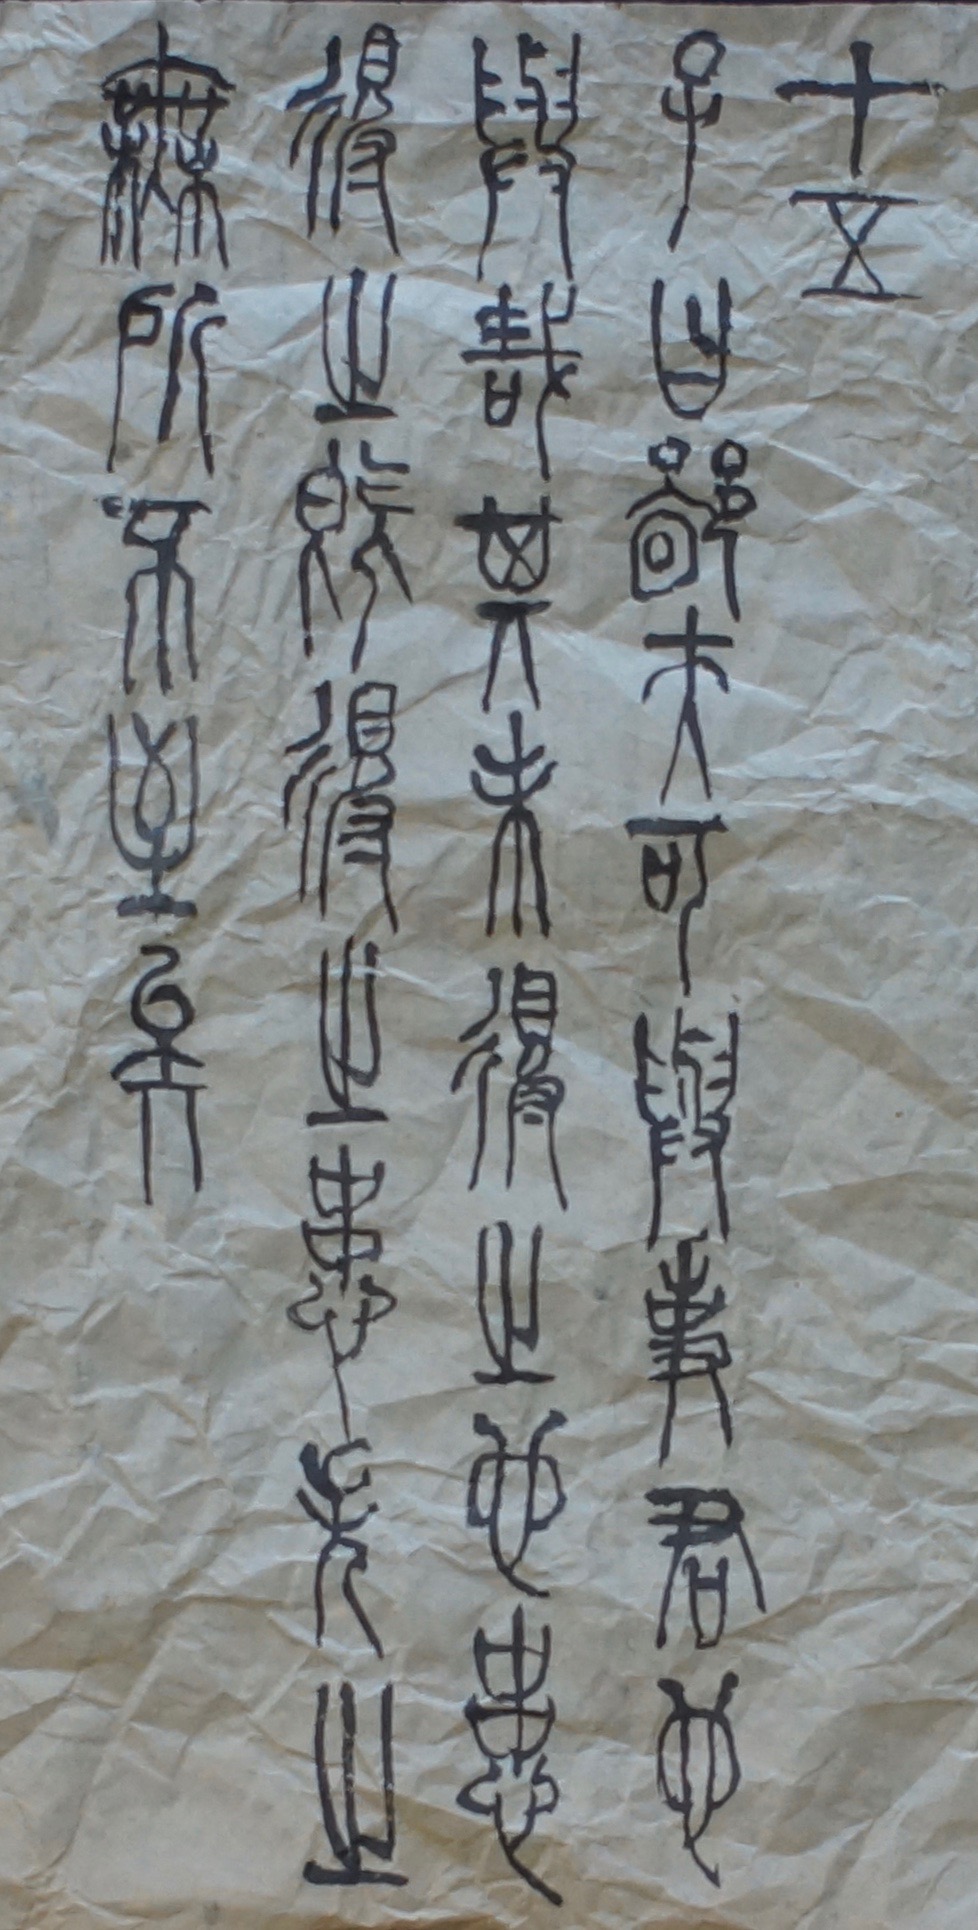 十五
子曰鄙夫可與事君也
與哉其未得之也患
得之既得之患失之
無所不至矣